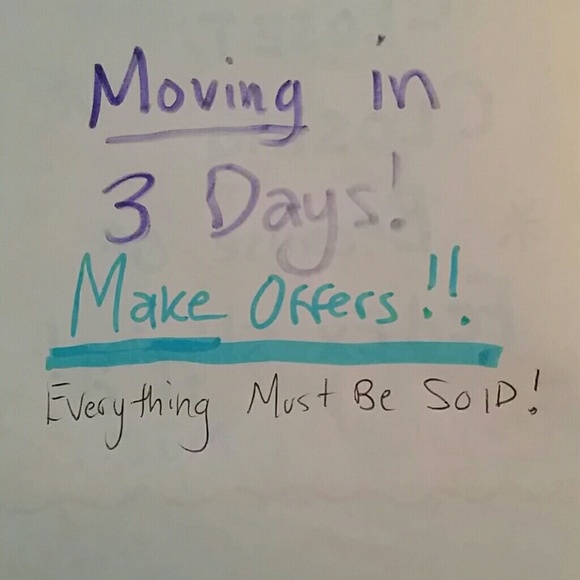 Moving in
3 Days!
Make Offers!!
Everything Must Be SolD!